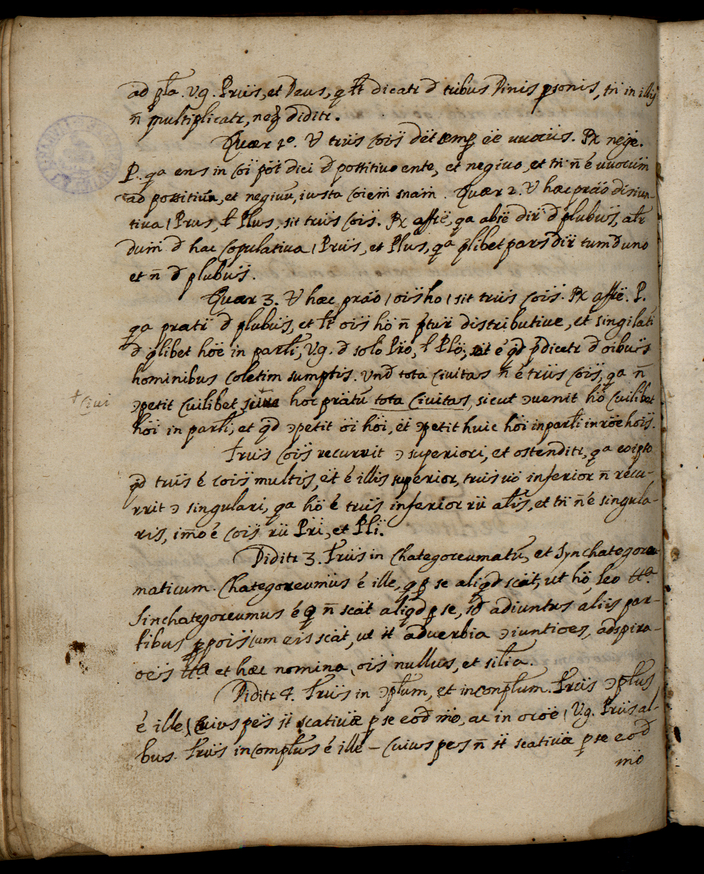 ad pla. Vg. Trũs, et Deus, q lt dicatr d tribus Dinis psonis, tñ in illis
ñ multiplicatr, neq diditr.
Quær 1º. V trũs cõis dẽt semp eẽ uuocus. Rx nege.
P. qa ens in cõi põt dici d possitiuo ente, et negiuo, et tñ ñ ẽ uuocum
ad possitiuũ, et negiuũ, iuxta cõiem snam. Quær 2. V hæc præo disiun-
tiua, Prus, l Plus, sit trũs cõis. Rx affẽ, qa
dum d hac copulatiua, Prũs, et Plus, qa qlibet pars dir tum d uno
et ñ d plubus.
Quær 3. V hæc præo, oĩs ho, sit trũs cõis. Rx affẽ. P.
qa prætr d plubus, et lt oĩs hõ ñ distributiue, et singilati
d qlibet hõe in parli, Vg. d solo Pro, l Plo, ẽ qd pdicatr d oibus
hominibus coletim sumptis. Vnd tota Ciuitas ñ ẽ trũs cõis, qa ñ
ɔpetit Cuilibet hoc prætũ tota Ciuitas, sicut ɔuenit hõ Cuilibet
† Ciui
hõi in parli, et qd ɔpetit oĩ hõi, ẽt ɔpetit huic hõi in parli in rõe hõis.
Trũs cõis recurrit ɔ superiori, et ostenditr, qa eo ipso
qd trũs ẽ cõis multis, ẽt ẽ illis superior, trũs uo inferior ñ recu-
rrit ɔ singulari, qa hõ ẽ trũs inferior rũ alis, et tñ ñ ẽ singula-
ris, imo ẽ cõis rũ Pri, et Pli.
Diditr 3. Trũs in Chategoreumatũ, et Synchategore-
maticum. Chategoreumus ẽ ille, q p se aliqd scat, ut hõ, leo tta.
Sinchategoreumus ẽ q ñ scat aliqd p se, sd adiuntus aliis par-
tibus ppõis cum eis scat, ut st aduerbia ɔiuntioes, adspira-
oẽis tta et hæc nomina, oĩs nullus, et silia.
Diditr 4. Trũs in ɔplum, et inconplum. Trũs ɔplus
ẽ ille, Cuius pes st scatiuæ p se eod mõ, ac in orõe, Vg. Prũs al-
bus. Trũs incomplus ẽ ille – Cuius pes ñ st scatiuæ p se eod
mõ